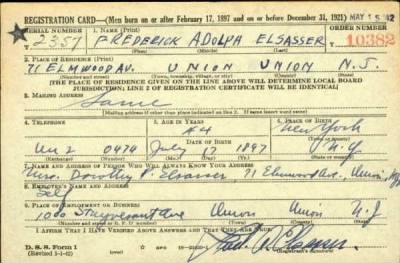 REGISTRATION CARD—(Men born on or after February 17, 1897 and on or before December 31, 1921) MAY 15 42
SERIAL NUMBER 1. NAME (Print) ORDER NUMBER
2357 FREDERICK ADOLPH ELSASSER 10382
2. PLACE OF RESIDENCE (Print)
71 ELMWOOD AV. UNION UNION N.J.
(Number and street) (Town, township, village, or city) (County) (State)
[THE PLACE OF RESIDENCE GIVEN ON THE LINE ABOVE WILL DETERMINE LOCAL BOARD
JURISDICTION; LINE 2 OF REGISTRATION CERTIFICATE WILL BE IDENTICAL]
3. MAILING ADDRESS
Same
(Mailing address if other than place indicated on line 2. If same insert word same)
4. TELEPHONE 5. AGE IN YEARS 6. PLACE OF BIRTH
44 New York
DATE OF BIRTH
Un 2 0474 July 17 1897 N.Y.
7. NAME AND ADDRESS OF PERSON WHO WILL ALWAYS KNOW YOUR ADDRESS
Mrs. Dorothy P. Elsasser 71 Elmwood Ave., Union, N.J.
8. EMPLOYER'S NAME AND ADDRESS
Self
9. PLACE OF EMPLOYMENT OR BUSINESS
1060 Stuyvesant Ave Union Union N.J.
(Number and street or R. F. D. number) (Town) (County) (State)
I AFFIRM THAT I HAVE VERIFIED ABOVE ANSWERS AND THAT THEY ARE TRUE.
D. S. S. Form 1
(Revised 4-1-42)
(Registrant's signature)